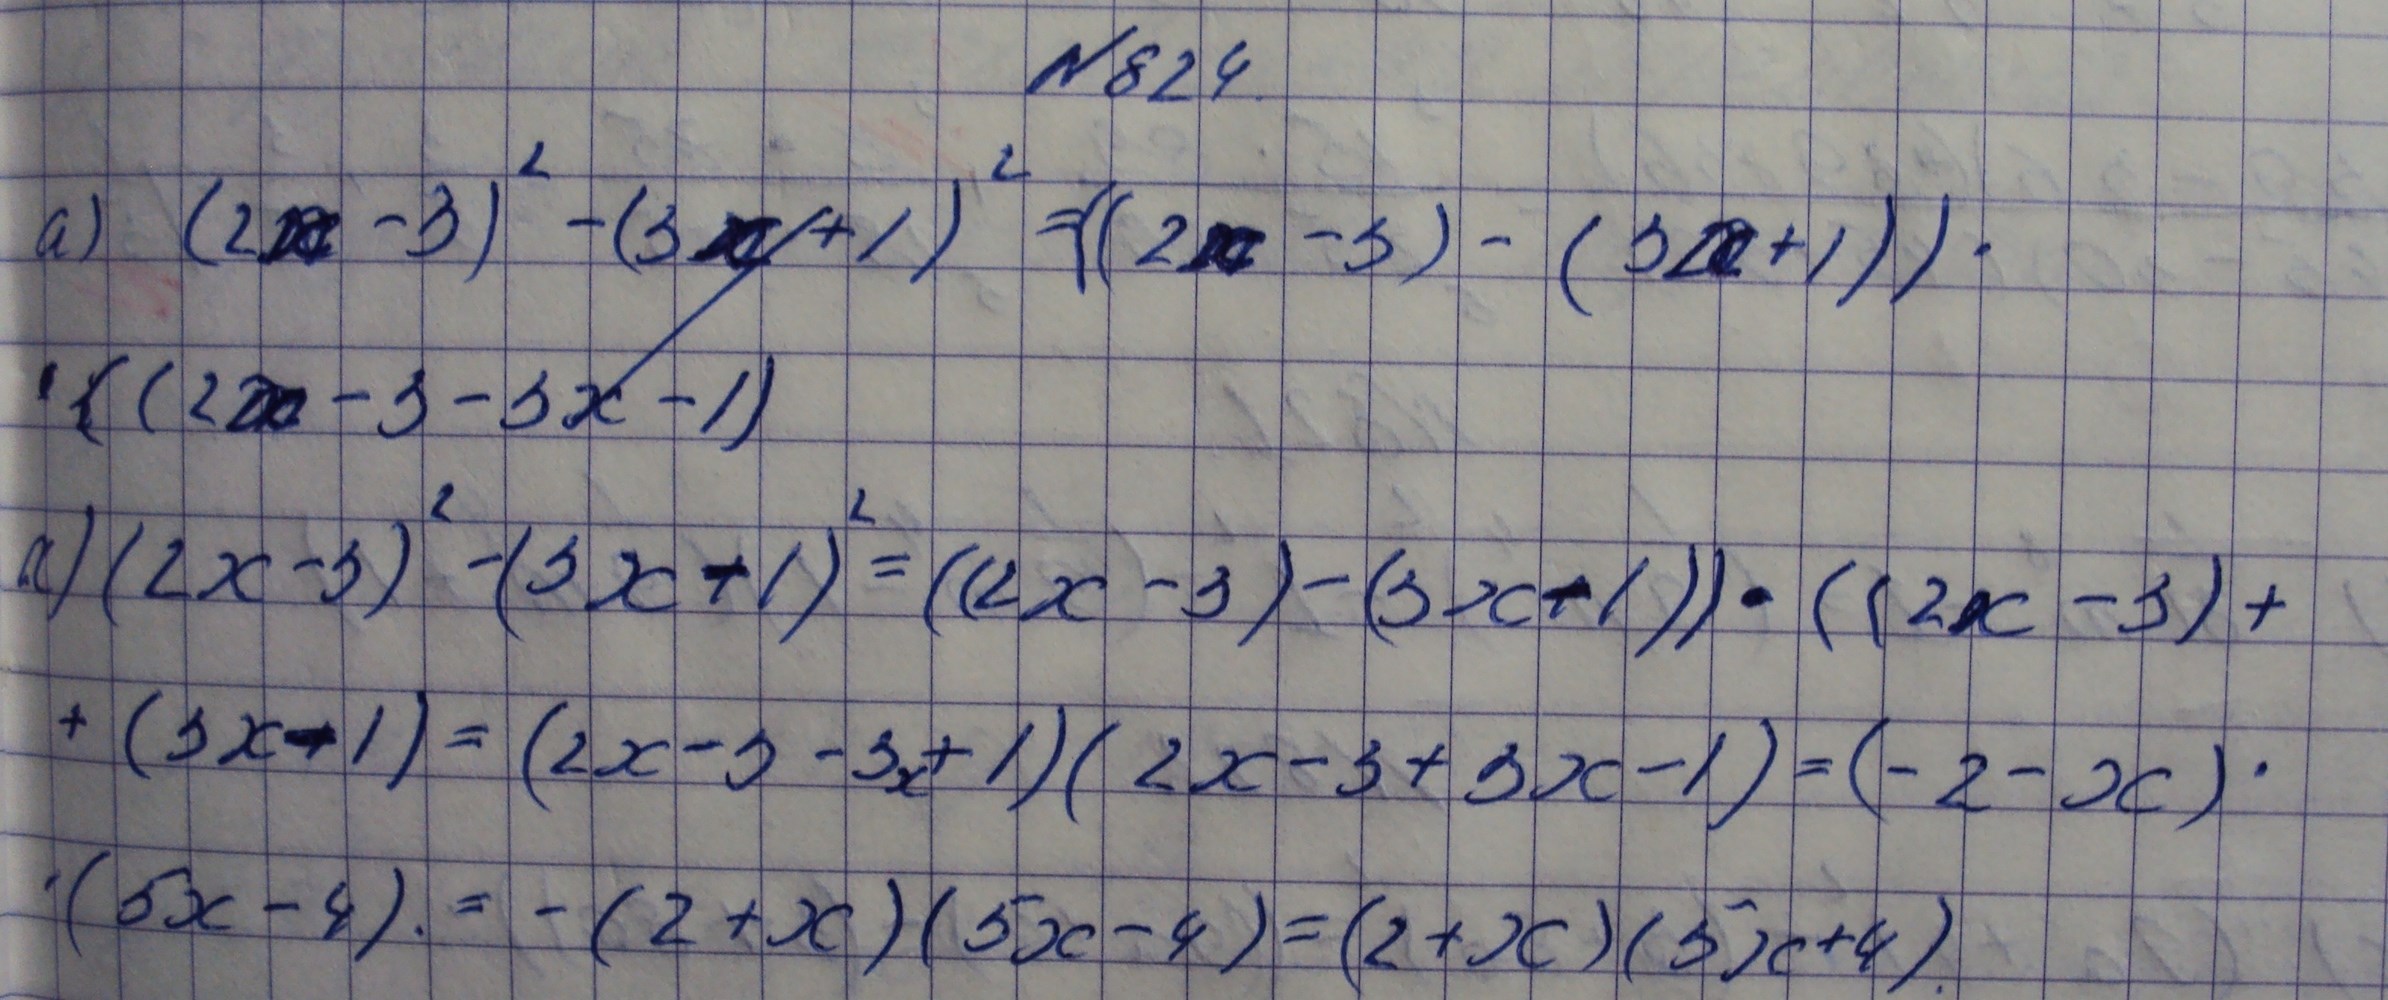 №824.
а) (2x-3)² -(3x+1)² =((2x-3)-(3x+1))·
·((2x-3-3x-1)
а)(2x-3)²-(3x-1)²=((2x-3)-(3x-1))·((2x-3)+
+(3x-1)=(2x-3-3x+1)(2x-3+3x-1)=(-2-x)·
·(5x-4).=-(2+x)(5x-4)=(2+x)(5x+4).